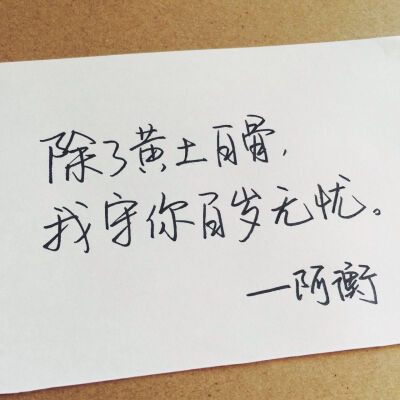 除了黄土百骨,
我守你百岁无忧。
—阿衡